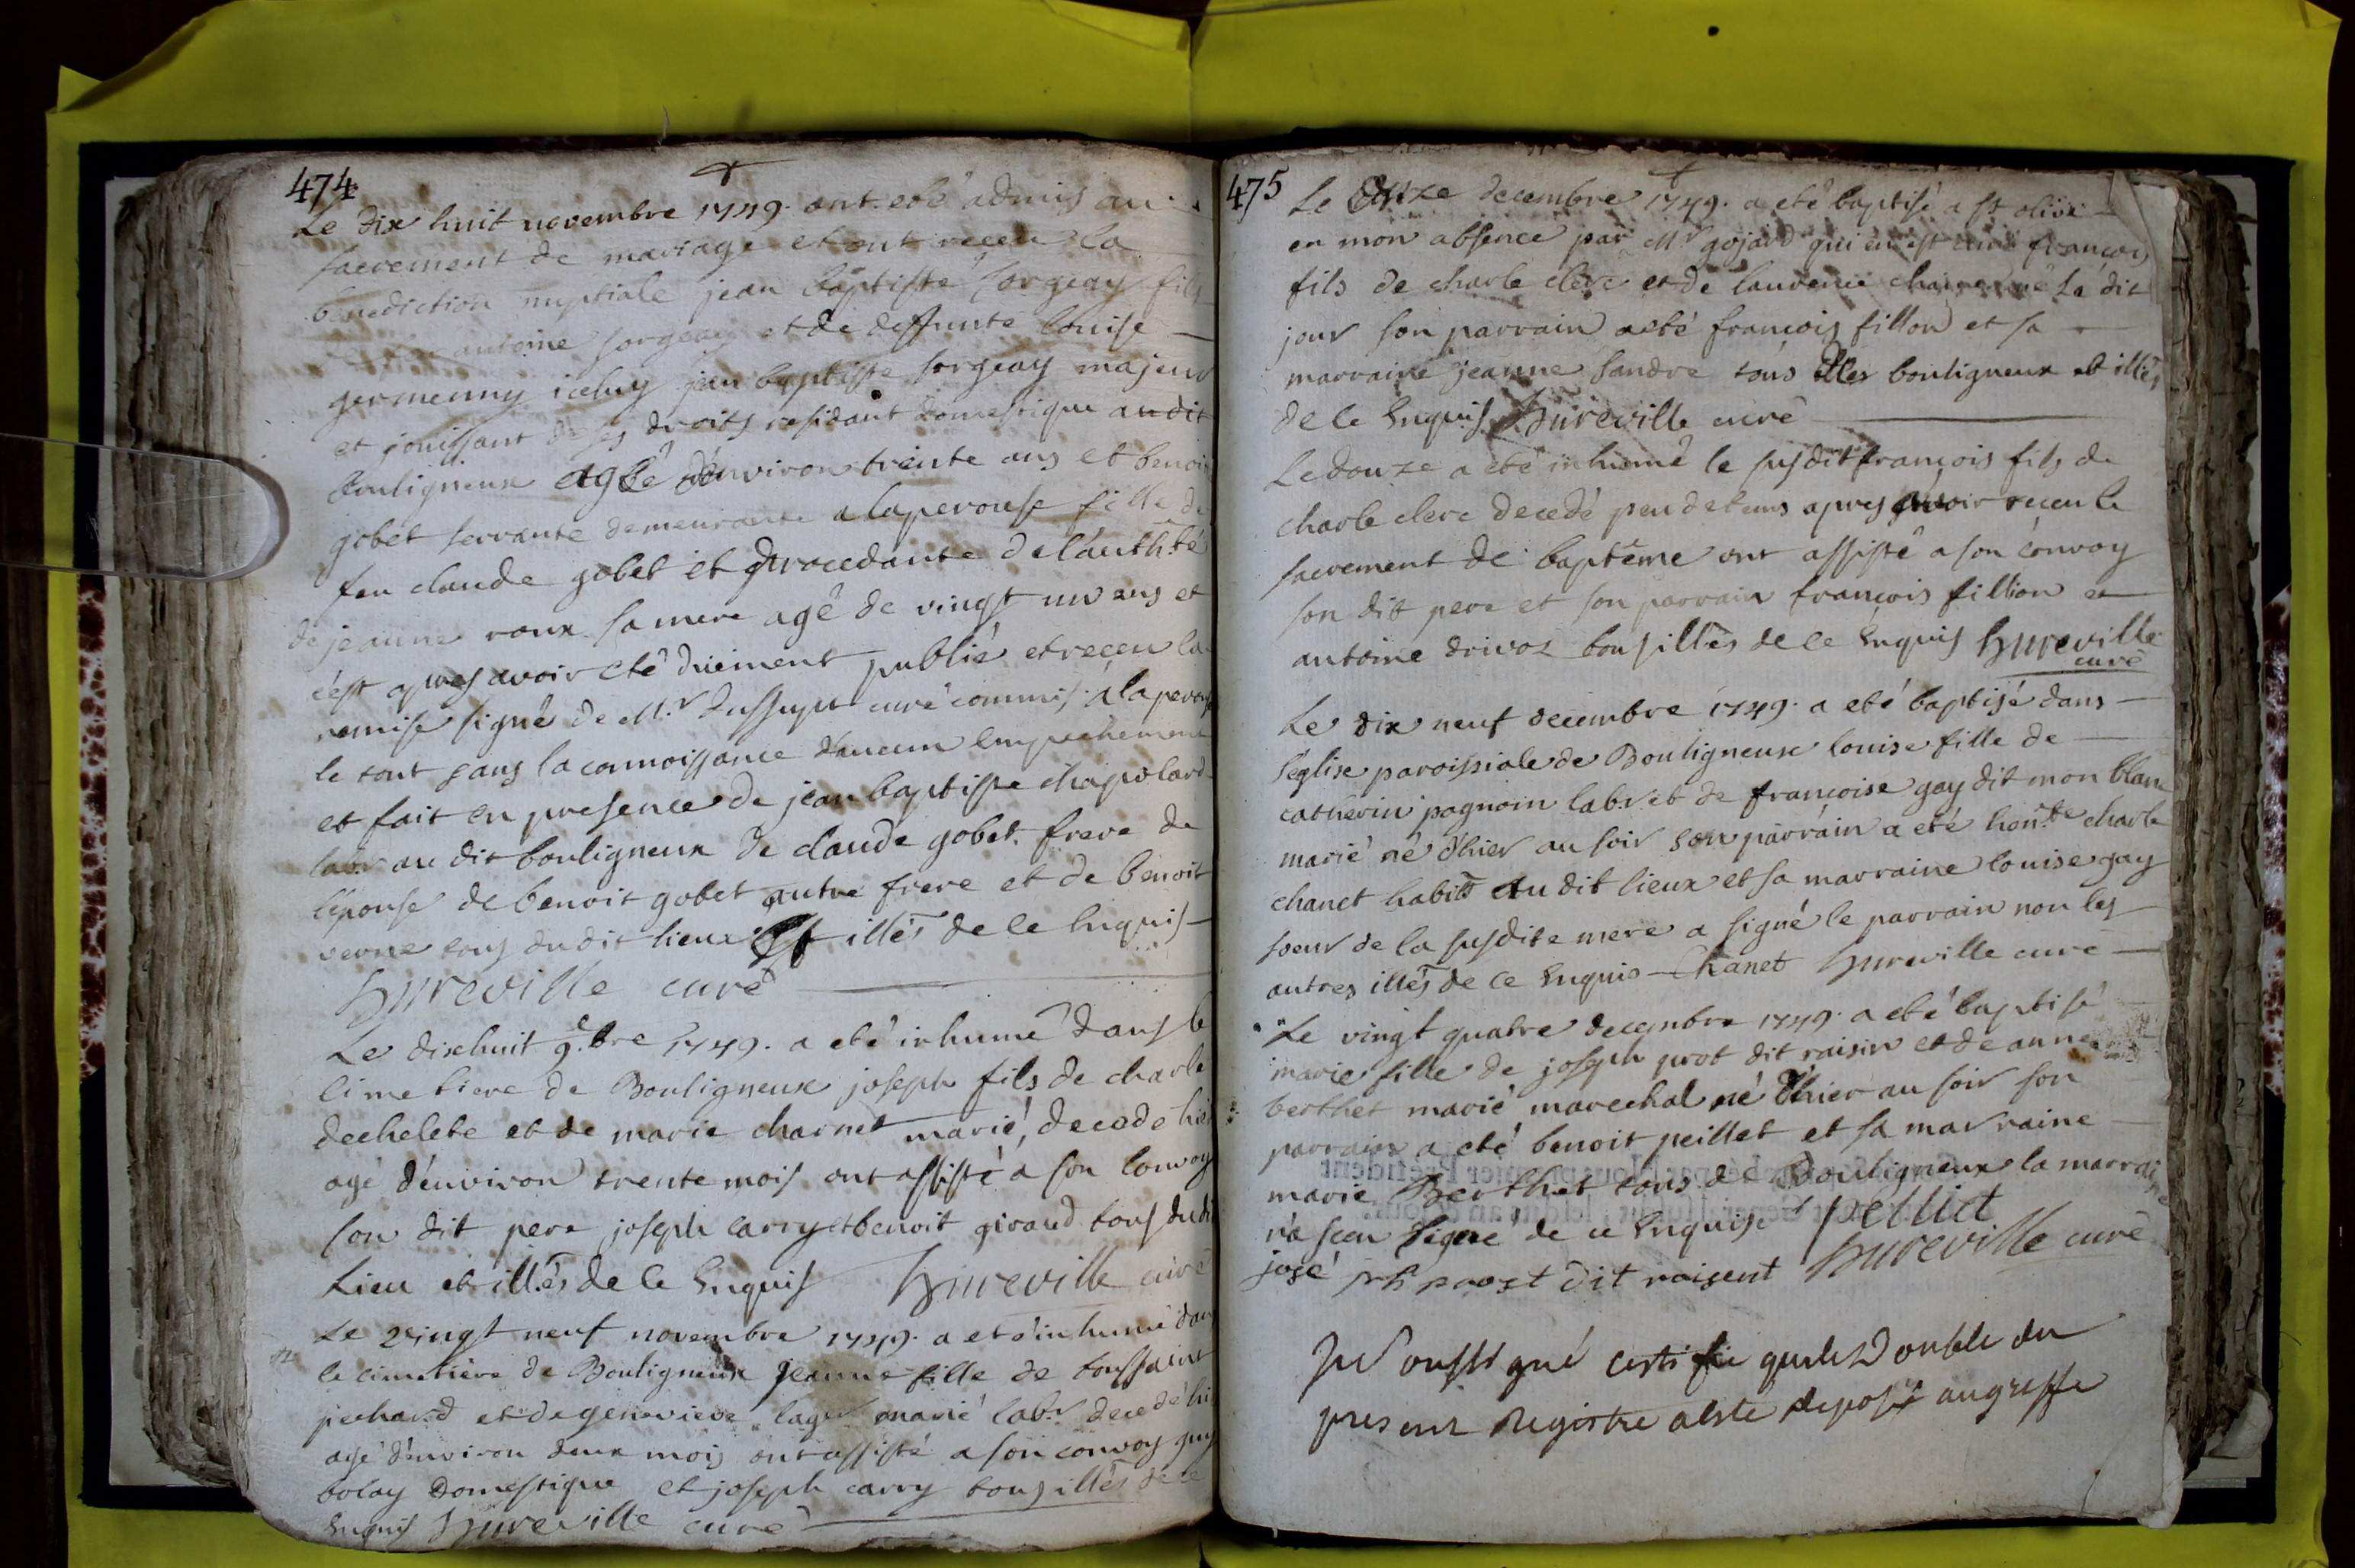 474
Le dix huit novembre 1749. ont eté admis au
sacrement de mariage et ont receu la
benediction nuptiale jean baptiste sorgeay fils
antoine sorgeay et de deffunte louise
germenny iceluy jean baptiste sorgeay majeur
et jouissant de ses droits residant domestique audit
bouligneux agé d'environ trente ans et benoit
gobet servante demeurante a laperouse fille de
feu claude gobet et procedante de l'auth.té
de jeanne roux sa mere agé de vingt un ans et
c'est apres avoir eté düement publié et receu la
remise signé de Mr curé commis a laperouse
le tout sans la connoissance d'aucun empechement
et fait en presence de jean baptiste chapolard
labr. au dit bouligneux de claude gobet frere de
l'epouse de benoit gobet autre frere et de benoit
verne tous du dit lieux et illés de le enquis
hureville curé
Le dixhuit 9.bre 1749. a eté inhumé dans le
cimetiere de Bouligneux joseph fils de charle
dechelete et de marie charnet marié, decedé hier
agé d'environ trente mois ont assisté a son convoy
son dit pere joseph carry et benoit giraud tous du dit
Lieu et illés de le Enquis hureville curé
Le vingt neuf novembre 1749. a eté inhumé dans
le cimetière de Bouligneux jeanne fille de toussaint
pechard et de genevieve lager marié labr. decedé hier
agé d'environ deux mois ont assisté a son convoy guy
bolay domestique et joseph carry tous illés de ce
Enquis hureville curé
475
Le Onze decembre 1749. a eté baptisé a st olive
en mon absence par Mr gojard qui en est curé françois
fils de charle clerc et de laurence né Le dit
jour son parrain a eté françois fillon et sa
marraine jeanne sandre tous des bouligneux et illés
de le Enquis hureville curé
Le douze a eté inhumé le susdit françois fils de
charle clerc decedé peu de tems apres avoir receu le
sacrement de baptême ont assisté a son convoy
son dit pere et son parrain françois fillion et
antoine drivoz tous illés de le Enquis hureville
curé
Le dix neuf decembre 1749. a eté baptisé dans
l'église paroissiale de Bouligneux louise fille de
catherin pognoin labr. et de françoise gay dit mon blanc
marié né d'hier au soir son parrain a eté hon.te charle
chanet habit. du dit lieux et sa marraine louise gay
soeur de la susdite mere a signé le parrain non les
autres illés de ce Enquis Chanet hureville curé
Le vingt quatre decembre 1749. a eté baptisé
marie fille de joseph prot dit raisin et de anne
berthet marié marechal né d'hier au soir son
parrain a eté benoit peillet et sa marraine
marie Berthet tous de Bouligneux la marraine
n'a sceu signe de ce Enquise peilliet
josé prost dit roisent hureville curé
Je Soussigné certifie que le Double du
present Registre a este deposé au greffe